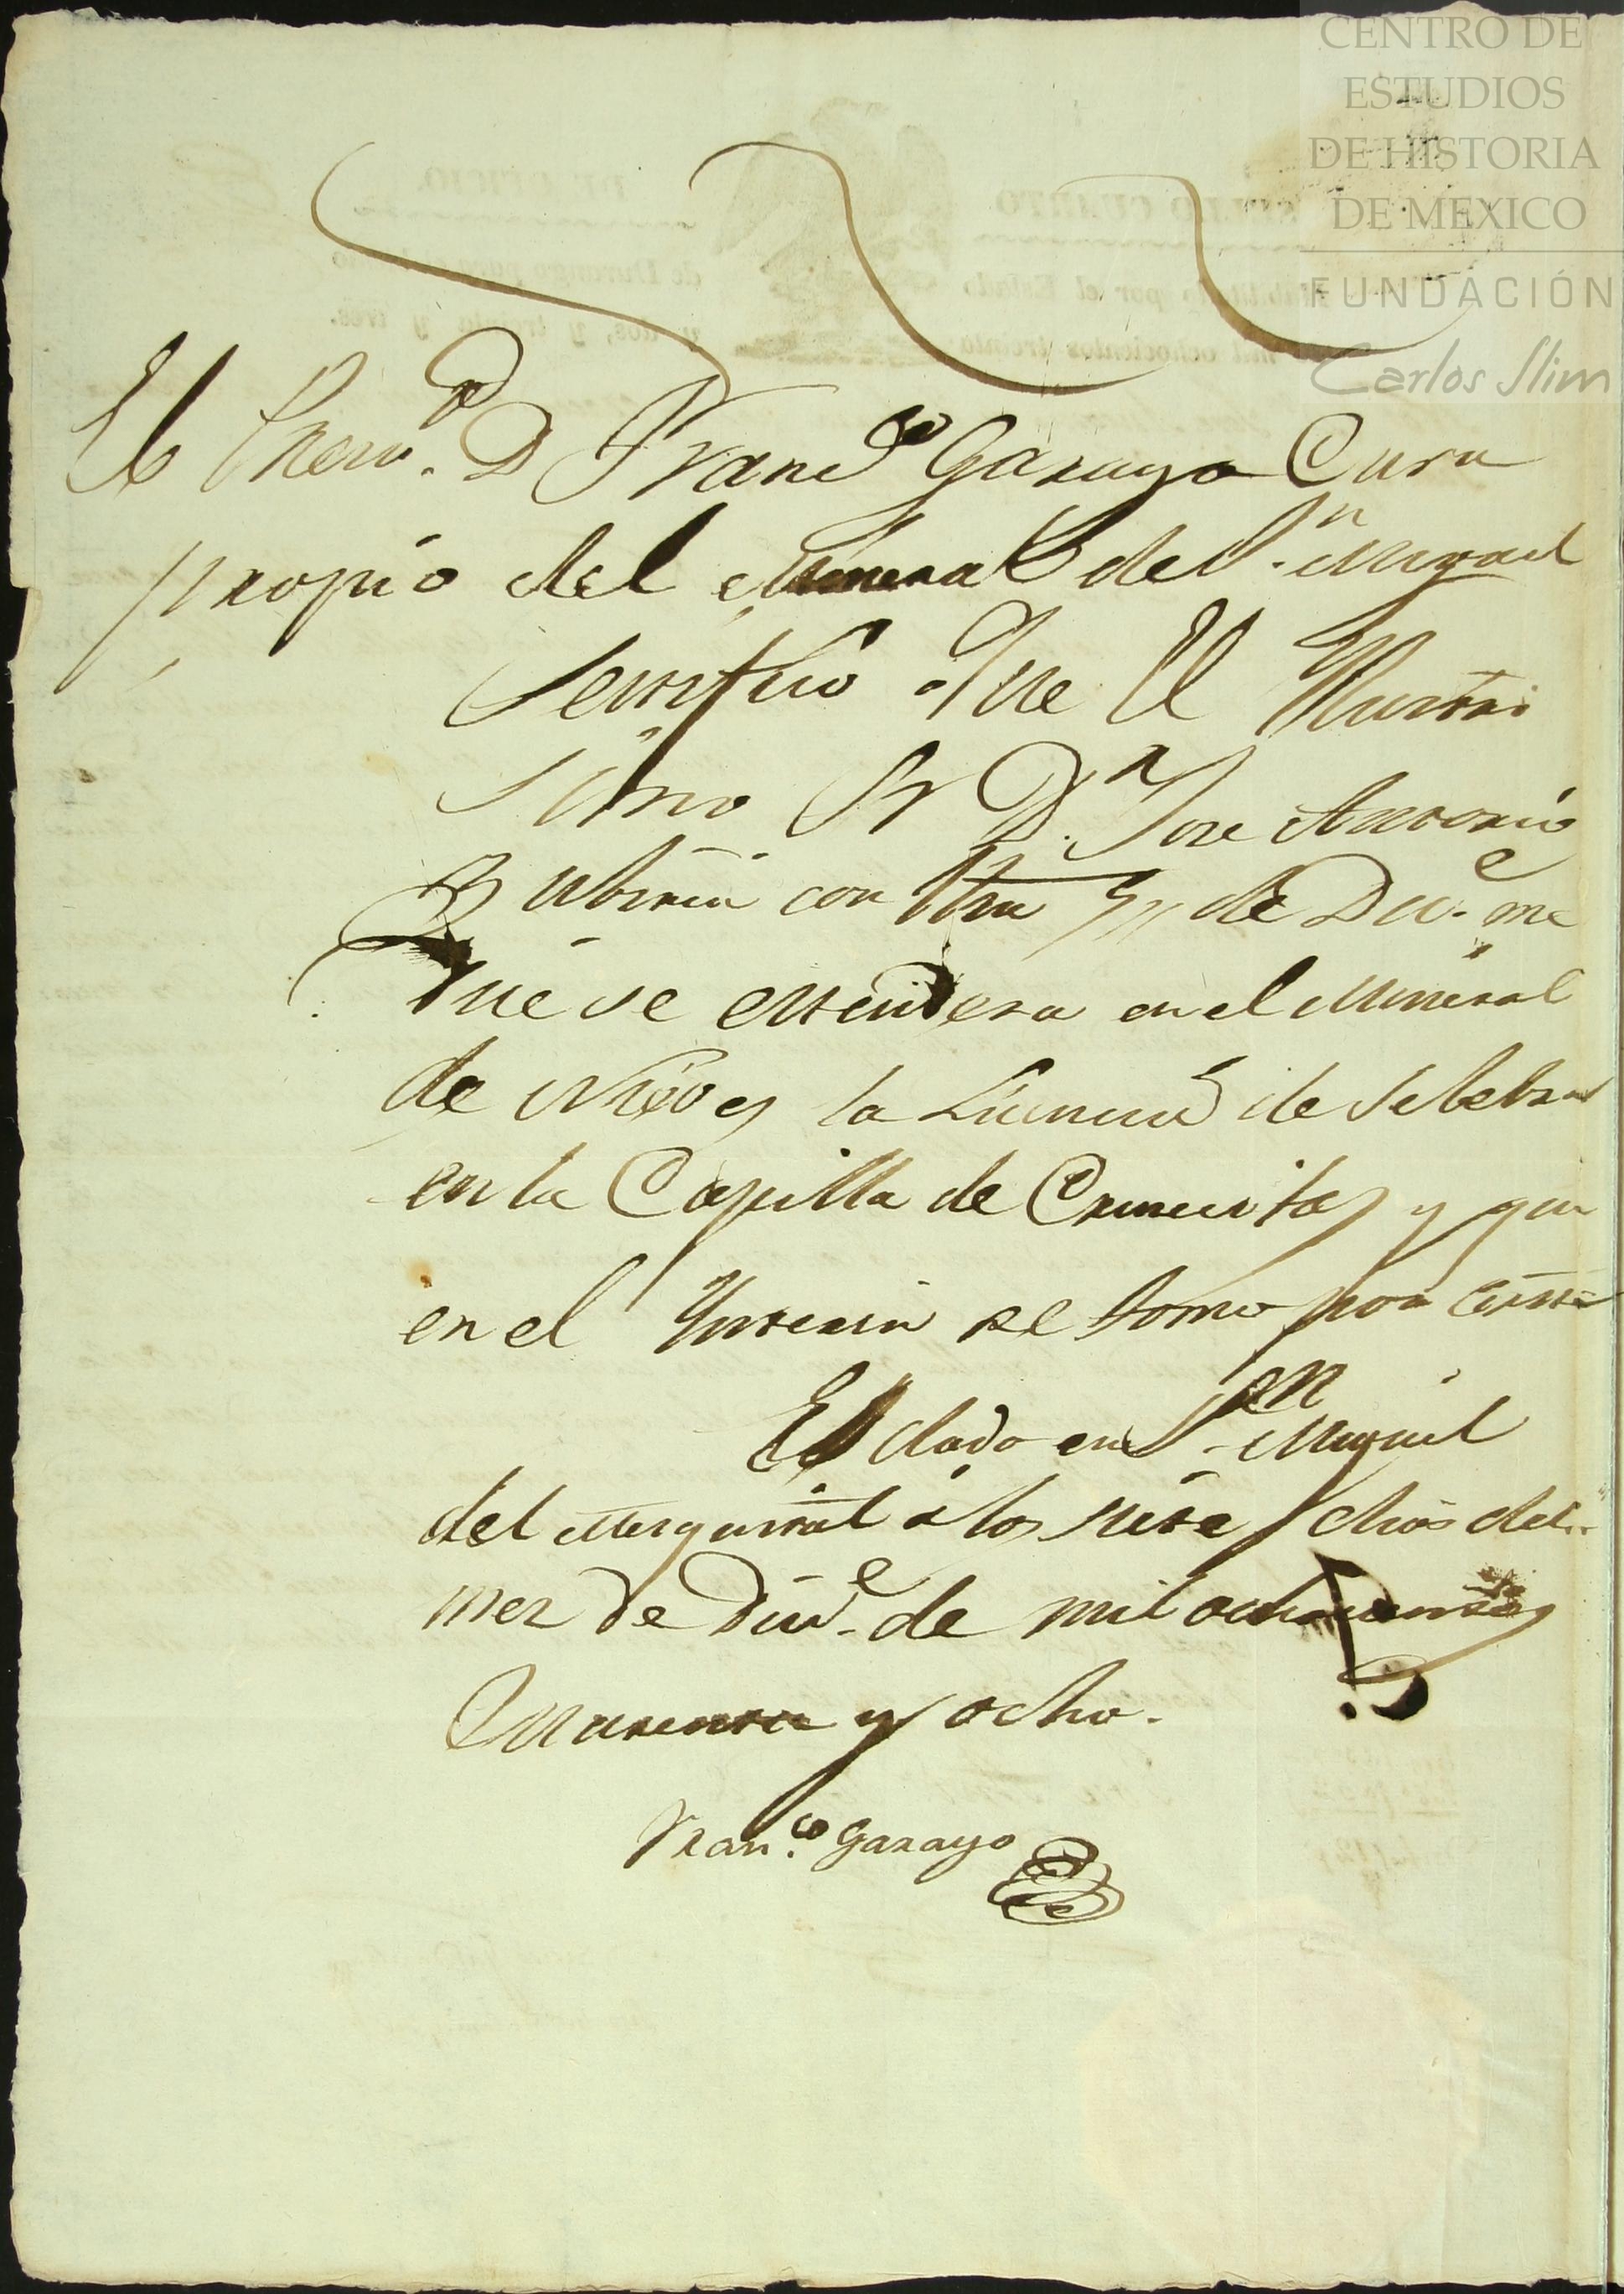 CENTRO DE
ESTUDIOS
DE HISTORIA
DE MEXICO
FUNDACIÓN
Carlos Slim
El Presvo. D Franco Garayo Cura
propio del Mineral de Sn. Miguel
Sertifico Que El Ilustri
simo Sr Dn. Jose Antonio
Zubiria con fha de Dice. me
que se estendiera en el Mineral
de Nieves la Licencia de Selebrar
en la Capilla de Crucesitas y que
en el Ynterin se tome por
Es dado en San. Miguel
del Mezquital a los siete dias del
mes de Dice. de mil ochocientos
Quarenta y ocho.
Franco. Garayo